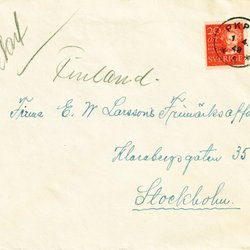 20
SVERIGE
PKP
Finland.
Firma E. W Larssons Frimärksaffä
Klarabergsgatan 35
Stockholm.